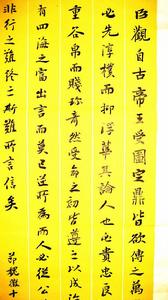 臣觀自古帝王受圖定鼎皆欲傳之萬
必先淳樸而抑浮華其論人也必貴忠良
重谷帛而賤珍奇然受命之初皆遵之以成治
有四海之富出言而莫己逆所為而人必從公
非行之難終之斯難所言信矣
節魏徵十